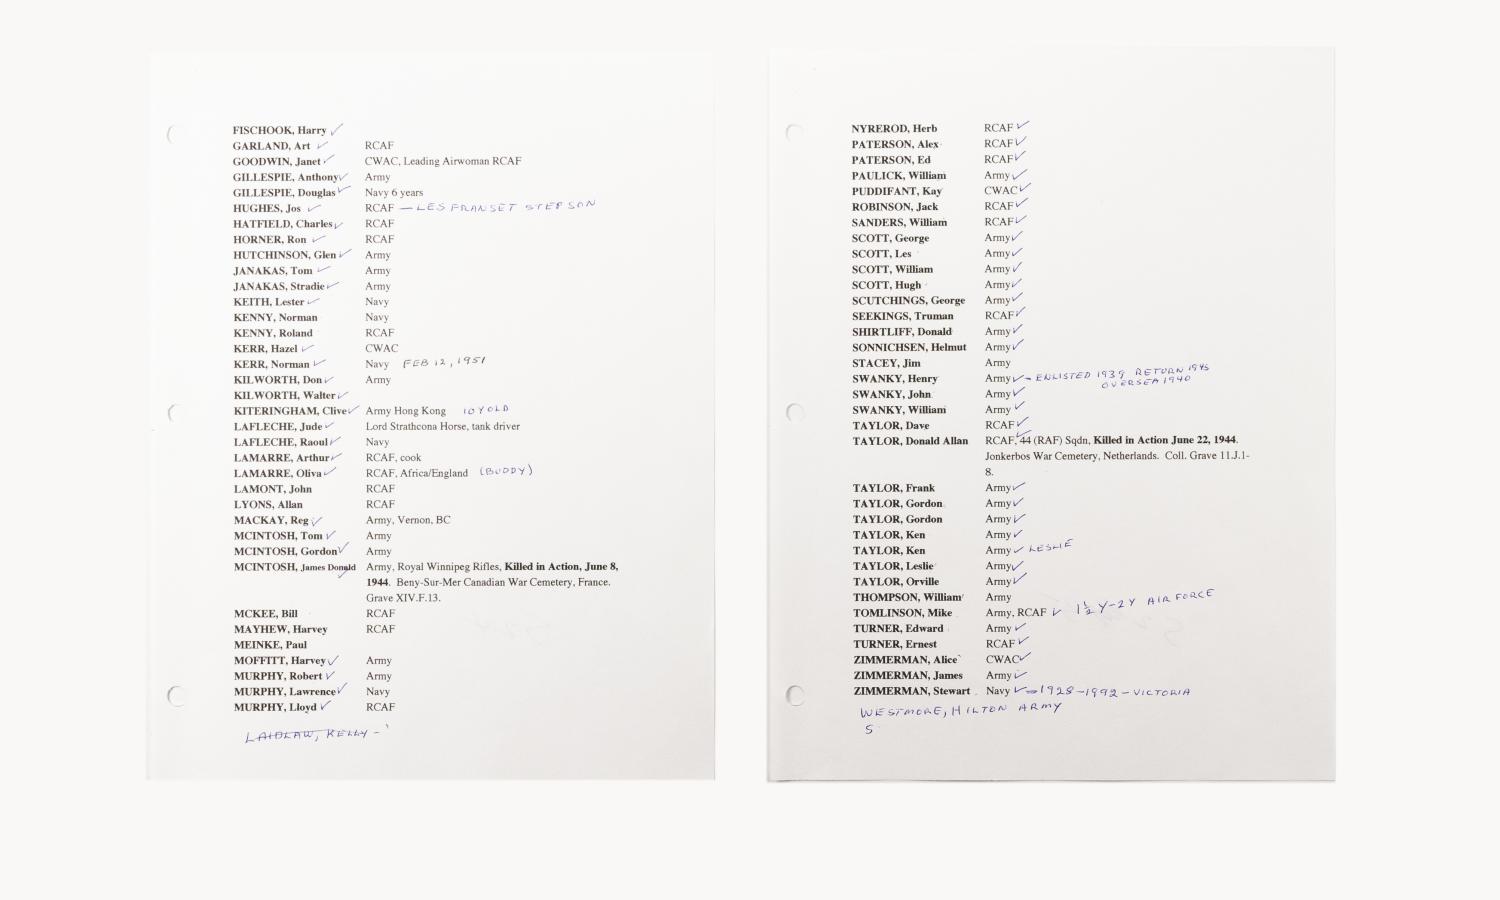 FISCHOOK, Harry ✓
GARLAND, Art ✓ RCAF
GOODWIN, Janet ✓ CWAC, Leading Airwoman RCAF
GILLESPIE, Anthony ✓ Army
GILLESPIE, Douglas ✓ Navy 6 years
HUGHES, Jos ✓ RCAF — LES FRANSET STEPSON
HATFIELD, Charles ✓ RCAF
HORNER, Ron ✓ RCAF
HUTCHINSON, Glen ✓ Army
JANAKAS, Tom ✓ Army
JANAKAS, Stradie ✓ Army
KEITH, Lester ✓ Navy
KENNY, Norman Navy
KENNY, Roland RCAF
KERR, Hazel ✓ CWAC
KERR, Norman ✓ Navy FEB 12, 1951
KILWORTH, Don ✓ Army
KILWORTH, Walter ✓
KITERINGHAM, Clive ✓ Army Hong Kong 10 Y OLD
LAFLECHE, Jude ✓ Lord Strathcona Horse, tank driver
LAFLECHE, Raoul ✓ Navy
LAMARRE, Arthur ✓ RCAF, cook
LAMARRE, Oliva ✓ RCAF, Africa/England (BUDDY)
LAMONT, John RCAF
LYONS, Allan RCAF
MACKAY, Reg ✓ Army, Vernon, BC
MCINTOSH, Tom ✓ Army
MCINTOSH, Gordon ✓ Army
MCINTOSH, James Donald ✓ Army, Royal Winnipeg Rifles, Killed in Action, June 8,
1944. Beny-Sur-Mer Canadian War Cemetery, France.
Grave XIV.F.13.
MCKEE, Bill RCAF
MAYHEW, Harvey RCAF
MEINKE, Paul
MOFFITT, Harvey ✓ Army
MURPHY, Robert ✓ Army
MURPHY, Lawrence ✓ Navy
MURPHY, Lloyd ✓ RCAF
LAIDLAW, KELLY -
NYREROD, Herb RCAF ✓
PATERSON, Alex RCAF ✓
PATERSON, Ed RCAF ✓
PAULICK, William Army ✓
PUDDIFANT, Kay CWAC ✓
ROBINSON, Jack RCAF ✓
SANDERS, William RCAF ✓
SCOTT, George Army ✓
SCOTT, Les Army ✓
SCOTT, William Army ✓
SCOTT, Hugh Army ✓
SCUTCHINGS, George Army ✓
SEEKINGS, Truman RCAF ✓
SHIRTLIFF, Donald Army ✓
SONNICHSEN, Helmut Army ✓
STACEY, Jim Army
SWANKY, Henry Army ✓ - ENLISTED 1939 RETURN 1945
OVERSEA 1940
SWANKY, John Army ✓
SWANKY, William Army ✓
TAYLOR, Dave RCAF ✓
TAYLOR, Donald Allan RCAF, 44 (RAF) Sqdn, Killed in Action June 22, 1944. ✓
Jonkerbos War Cemetery, Netherlands. Coll. Grave 11.J.1-
8.
TAYLOR, Frank Army ✓
TAYLOR, Gordon Army ✓
TAYLOR, Gordon Army ✓
TAYLOR, Ken Army ✓
TAYLOR, Ken Army ✓ LESLIE
TAYLOR, Leslie Army ✓
TAYLOR, Orville Army ✓
THOMPSON, William Army
TOMLINSON, Mike Army, RCAF ✓ 1½ Y-2Y AIR FORCE
TURNER, Edward Army ✓
TURNER, Ernest RCAF ✓
ZIMMERMAN, Alice CWAC ✓
ZIMMERMAN, James Army ✓
ZIMMERMAN, Stewart Navy ✓ - 1928-1992 - VICTORIA
WESTMORE, HILTON ARMY
S